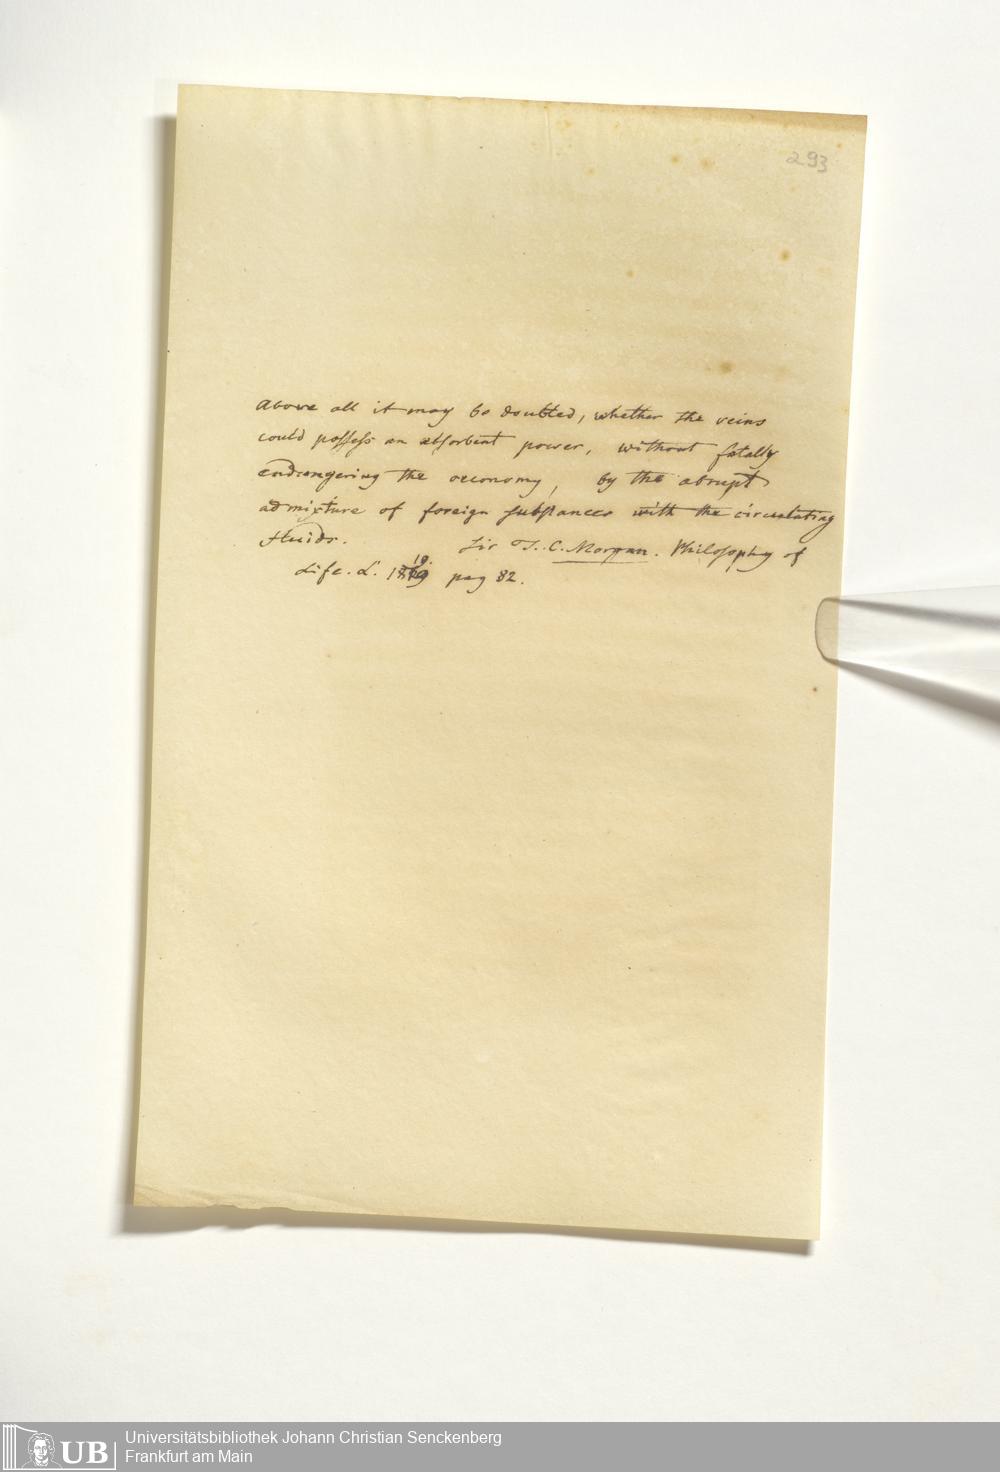 293
Above all it may be doubted, whether the veins
could possess an absorbent power, without fatally
endangering the oeconomy, by the abrupt
admixture of foreign substances with the circulating
fluids. Sir T. C. Morgan. Philosophy of
Life. L. 1819 pag 82.
19.
UB
Universitätsbibliothek Johann Christian Senckenberg
Frankfurt am Main